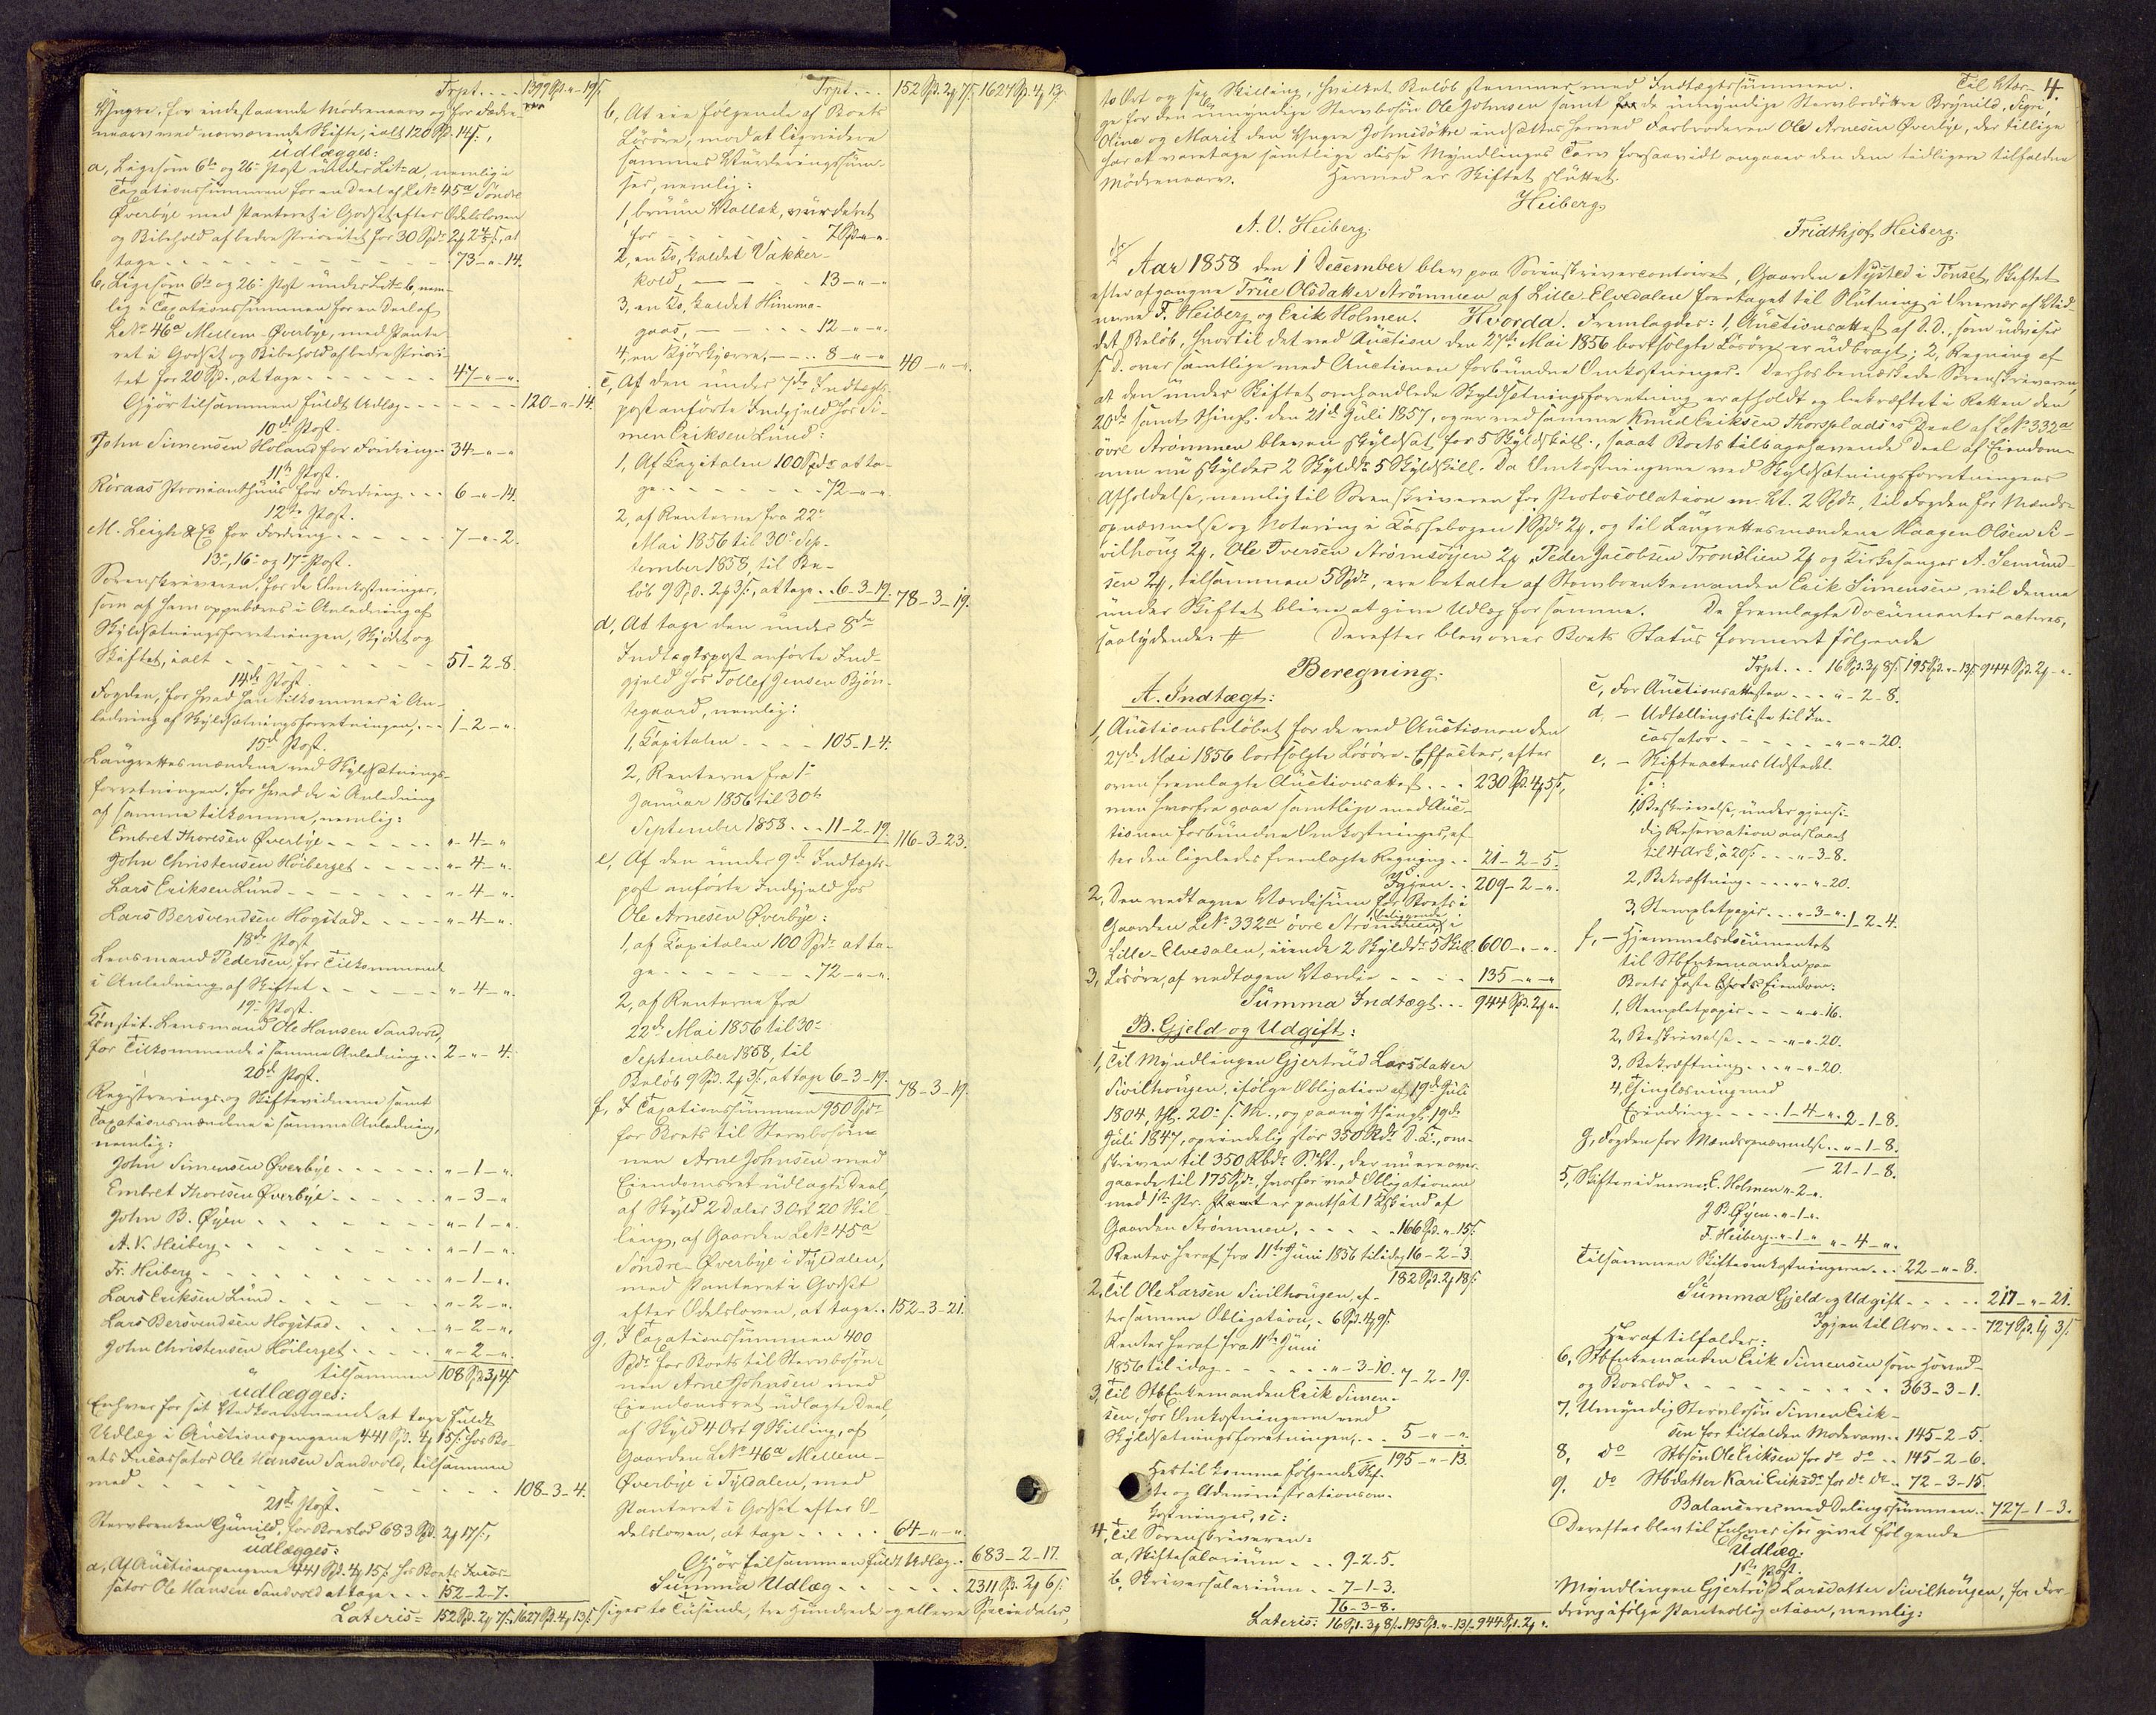 Trpt. . . . 1399 Spd. „ - 19 s.
Yngre, for indestaaende Mödrenearv og for Fædre-
nearv ved nærværende Skifte, ialt 120 Spd. „ 14 s.,
üdlægges:
a, Ligesom 6te og 26- Post ünder Litr. a, nemlig i
Taxationssümmen for en Deel af L.No. 45a Söndre
Øverbÿe med Panteret i Godset efter Odelsloven
og Bibehold af bedre Prioritet for 30 Spdr. 2 o. s., at
tage - - - - 73 - „ - 14.
b, Ligesom 6te og 26- Post ünder Litr. b, nem-
lig i Taxationssümmen for en Deel af
L.No. 46a Mellem-Øverbÿe, med Pante-
ret i Godset og Bibehold af bedre Priori-
tet for 20 Spd., at tage - - - - 47 - „ - „.
Gjör tilsammen füldt Udlæg - - - - 120 - „ - 14.
10de Post.
John Simensen Höland for Fordring - - 34 - „ - „
11te Post.
Röraas Proviantshüüs for Fordring - - - 6 - „ - 14.
12te Post.
M. Leigh & Co for Fordring - - - - 7 - „ - 2.
13-, 16- og 17- Post.
Sorenskriveren, for de Omkostninger,
som af ham oppebæres i Anledning af
Skÿldsætningsforretningen, Skjödet og
Skiftet, ialt - - - - 51 - 2 - 8.
14de Post.
Fogden, for hvad ham tilkommer i An-
ledning af Skÿldsætningsforretningen, - - 1 - 2 - „.
15de Post.
Laugrettesmændene ved Skÿldsætnings-
forretningen, for hvad de i Anledning
af samme tilkomme, nemlig:
Embret Thoresen Øverbÿe - - - - „ - 4 - „
John Christensen Höiberget - - - - „ - 4 - „.
Lars Eriksen Lünd - - - - „ - 4 - „.
Lars Bersvendsen Hogstad - - - - „ - 4 - „.
18de Post
Lensmand Pedersen, for Tilkommende
i Anledning af Skiftet - - - - „ - 4 - „.
19- Post.
Konstit. Lensmand Ole Hansen Sandvold,
for Tilkommende i samme Anledning - - 2 - „ - 4.
20de Post.
Registrerings- og Skiftevidnerne samt
Taxationsmændene i samme Anledning,
nemlig:
John Simensen Øverbÿe - - - - „ - 1 - „.
Embret Thoresen Øverbÿe - - - - „ - 3 - „
John B. Øÿen - - - - „ - 1 - „.
A. V. Heiberg - - - - „ - 1 - „.
Fr. Heiberg - - - - „ - 1 - „.
Lars Eriksen Lünd - - - - „ - 2 - „.
Lars Bersvendsen Hogstad - - - - „ - 2 - „.
John Christensen Höiberget - - - - „ - 2 - „.
tilsammen 108 Spd. 3 o. 4 s.
üdlægges:
Enhver for sit Vedkommende at tage füldt
Udlæg i Auctionspengene 441 Spd. 4 o. 15 s. hos Bo-
ets Incassator Ole Hansen Sandvold, tilsammen
med - - - - 108 - 3 - 4.
21de Post.
Stervboenken Günild, for Boeslod 683 Spd. 2 o. 17 s.,
üdlægges:
a, Af Auctionspengene 441 Spd. 4 o. 15 s. hos Boets Incas-
sator Ole Hansen Sandvold at tage - - - 152 - 2 - 7.
Lateris: 152 Spd. 2 o. 7 s. 1627 Spd. 4 o. 13 s.
Trpt. . . . 152 Spd. 2 o. 7 s. 1627 Spd. 4 o. 13 s.
b, At eie følgende af Boets
Lösöre, mod at liqvidere
sammes Vürderingssüm-
mer, nemlig:
1, brüün Vallak, vürderet
for - - - - 7 Spd. „ - „.
2, en Ko, kaldet Vakker-
kold, - - - 13 - „ - „
3, en Ko, kaldet Himma-
gaas, - - - 12 - „ - „.
4, en Kjörekjærre, - - 8 - „ - „ 40 - „ - „.
c, Af den ünder 7de Indtægts-
post anförte Indgjeld hos Si-
men Eriksen Lünd:
1, Af Capitalen 100 Spdr. at ta-
ge - - - - 72 - „ - „.
2, af Renterne fra 22-
Mai 1856 til 30- Sep-
tember 1858, til Be-
löb 9 Spd. 2 o. 3 s., at tage - - 6 - 3 - 19. 78 - 3 - 19.
d, At tage den ünder 8de
Indtægtspost anförte Ind-
gjeld hos Tollef Jensen Bjön-
tegaard, nemlig:
1, Capitalen - - - - 105 - 1 - 4.
2, Renterne fra 1-
Januar 1856 til 30te
September 1858 - - - 11 - 2 - 19. 116 - 3 - 23.
e, Af den ünder 9de Indtægts-
post anförte Indgjeld hos
Ole Arnesen Øverbÿe:
1, af Capitalen 100 Spdr. at ta-
ge - - - - 72 - „ - „.
2, af Renterne fra
22de Mai 1856 til 30-
September 1858, til
Belöb 9 Spd. 2 o. 3 s., at tage 6 - 3 - 19. 78 - 3 - 19.
f, I Taxationssümmen 950 Spdr.
for Boets til Stervbosön-
nen Arne Johnsen med
Eiendomsret üdlagte Deel,
af Skÿld 2 Daler 3 Ort 20 Skil-
ling, af Gaarden L.No. 45a
Söndre-Øverbÿe i Tÿldalen,
med Panteret i Godset
efter Odelsloven, at tage - - 152 - 3 - 21.
g, I Taxationssümmen 400
Spdr. for Boets til Stervbosön-
nen Arne Johnsen med
Eiendomsret üdlagte Deel,
af Skÿld 4 Ort 9 Skilling, af
Gaarden L.No. 46a Mellem-
Øverbÿe i Tÿldalen, med
Panteret i Godset efter O-
delsloven, at tage - - - - 64 - „ - „.
Gjör tilsammen füldt Udlæg - - 683 - 2 - 17.
Sümma Udlæg - - - - 2311 Spd. 2 o. 6 s.
siger to Tüsinde, tre Hündrede og elleve Speciedaler,
4.
to Ort og sex Skilling, hvilket Beløb stemmer med Indtægtssümmen. Til Vær-
ge for den umÿndige Stervbosön Ole Johnsen samt de umÿndige Stervbodöttre Brÿnild, Sigri,
Oline og Marit den Yngre Johnsdöttre indsættes herved Farbroderen Ole Arnesen Øverbÿe, der tillige
har at varetage samtlige disse Mÿndlinges Tarv forsaavidt angaaer den dem tidligere tilfaldne
Mödrenearv. Hermed er Skiftet slüttet.
Heiberg
A. V. Heiberg. Fridthjof Heiberg.
Aar 1858 den 1 December blev paa Sorenskrivercontoiret, Gaarden Nÿsted i Tönset, Skiftet
efter afgangne Trüe Olsdatter Strömmen af Lille-Elvedalen foretaget til Slütning i Overvær af Vid-
nerne F. Heiberg og Erik Holmen. Hvorda. Fremlagdes: 1, Auctionsattest af D. D., som üdviser
det Beløb, hvortil det ved Auction den 27de Mai 1856 bortsolgte Lösöre er üdbragt; 2, Regning af
s. D. over samtlige med Auctionen forbündne Omkostninger. Derhos bemærkede Sorenskriveren,
at den ünder Skiftet omhandlede Skÿldsætningsforretning er afholdt og bekræftet i Retten den
20de samt thingl. den 21de Jüli 1857, og er ved samme Knüd Eriksen Thorsplads's Deel af L.No. 332a
övre Strömmen bleven skÿldsat for 5 Skÿldskill., saaat Boets tilbagehavende Deel af Eiendom-
men nü skÿlder 2 Skÿlddr. 5 Skÿldskill. Da Omkostningerne ved Skÿldsætningsforretningens
Afholdelse, nemlig til Sorenskriveren for Protocollation m. V. 2 Spdr., til Fogden for Mænds-
opnævnelse og Notering i Cassebogen 1 Spdr. 2 o., og til Laugrettesmændene Haagen Olsen Si-
vilhoug 2 o., Ole Iversen Strömsöÿen 2 o., Peder Jacobsen Tronslien 2 o. og Kirkesanger A. Semünd-
sen 2 o., tilsammen 5 Spdr., ere betalte af Stervboenkemanden Erik Simensen, vil denne
ünder Skiftet blive at give Udlæg for samme. De fremlagte Documenter acteres,
saalÿdende: # Derefter blev over Boets Status formeret følgende
Beregning.
A. Indtægt:
1, Auctionsbeløbet for de ved Auctionen den
27de Mai 1856 bortsolgte Lösöre-Effecter, efter
oven fremlagte Auctionsattest - - - 230 Spd. 4 o. 5 s.,
men hvorfra gaae samtlige med Auc-
tionen forbündne Omkostninger, ef-
ter den ligeledes fremlagte Regning - - 21 - 2 - 5.
Igjen - - 209 - 2 - „.
2, Den vedtagne Værdisüm for Boets i
Gaarden L.No. 332a övre Strömmen, beliggende i
Lille-Elvedalen, eiende 2 Skÿlddr. 5 Skill. 600 - „ - „.
3, Lösöre, af vedtagen Værdie - - - - 135 - „ - „
Sümma Indtægt - - - 944 Spd. 2 o. „.
B. Gjeld og Udgift:
1, Til Mÿndlingen Gjertrüd Larsdatter
Sivilhoügen, ifölge Obligation af 19de Jüli
1804, thl. 20- s. M., og paanÿ thingl. 19de
Jüli 1847, oprindelig stor 350 Rdr. D. C., om-
skreven til 350 Rbdr. S. V., der nü ere over-
gaaede til 175 Spdr., hvorfor ved Obligationen
med 1ste Pr. er pantsat 1 Hüd i
Gaarden Strömmen, - - - - 166 Spd. „ 15 s.
Renter heraf fra 11te Jüni 1856 til idag 16 - 2 - 3.
182 Spd. 2 o. 18 s.
2, Til Ole Larsen Sivilhoügen, ef-
ter samme Obligation, - 6 Spd. 4 o. 9 s.
Renter heraf fra 11te Jüni
1856 til idag - - - - „ - 3 - 10. 7 - 2 - 19.
3, Til StbEnkemanden Erik Simen-
sen, for Omkostningerne ved
Skÿldsætningsforretningen, - - - 5 - „ - „.
195 - „ - 13.
Hertil komme følgende Skif-
te og Administrationsom-
kostninger, sc:
4, Til Sorenskriveren:
a, Skiftesalarium - - - 9 - 2 - 5.
b, Skriversalarium - - 7 - 1 - 3.
16 - 3 - 8.
Lateris: 16 Spd. 3 o. 8 s. 195 Spd. „ - 13 s. 944 Spd. 2 o. „.
Trpt. . . 16 Spd. 3 o. 8 s. 195 Spd. „ - 13 s. 944 Spd. 2 o. „.
c, For Auctionsattesten - - - „ - 2 - 8.
d, — Udtællingsliste til In-
cassator - - - - „ - „ - 20.
e, — Skifteactens Udstedel-
se:
1, Beskrivelse, ünder gjensi-
dig Reservation anslaaet
til 4 Ark, à 20 s. - - - „ - 3 - 8.
2, Bekræftning - - - „ - „ - 20.
3, Stemplet papir - - - „ - 3 - „. 1 - 2 - 4.
f, — Hjemmelsdocümentet
til StbEnkemanden paa
Boets faste Eiendom:
1, Stemplet papir - - - „ - „ - 16.
2, Beskrivelse - - - „ - „ - 20.
3, Bekræftning - - - „ - „ - 20.
4, Thinglæsning med
Erindring - - - - 1 - 4 - „. 2 - 1 - 8.
g, Fogden for Mændsopnævnelse - - „ - 1 - 8.
21 - 1 - 8.
5, Skiftevidnerne: E. Holmen „ - 2 - „.
J. B. Øÿen - „ - 1 - „.
F. Heiberg - „ - 1 - „ „ - 4 - „.
Tilsammen Skifteomkostningerne - - 22 - „ - 8.
Sümma Gjeld og Udgift - - - - 217 - „ - 21.
Igjen til Arv - - - 727 Spd. 1 o. 3 s.
Heraf tilfalder:
6, StbEnkemanden Erik Simensen som Hoved-
og Boeslod - - - - 363 - 3 - 1.
7, Umÿndig Stervbosön Simen Erik-
sen for tilfalden Moderarv - - 145 - 2 - 5.
8, do Stbsön Ole Eriksen for do do - - 145 - 2 - 6.
9, do Stbdatter Kari Eriksdr. for do do - - 72 - 3 - 15.
Balancerer med Delingssümmen - - 727 - 1 - 3.
Derefter blev til Enhver især givet følgende
Udlæg.
1ste Post.
Mÿndlingen Gjertrüd Larsdatter Sivilhoügen, for For-
dring ifölge Panteobligation, nemlig: